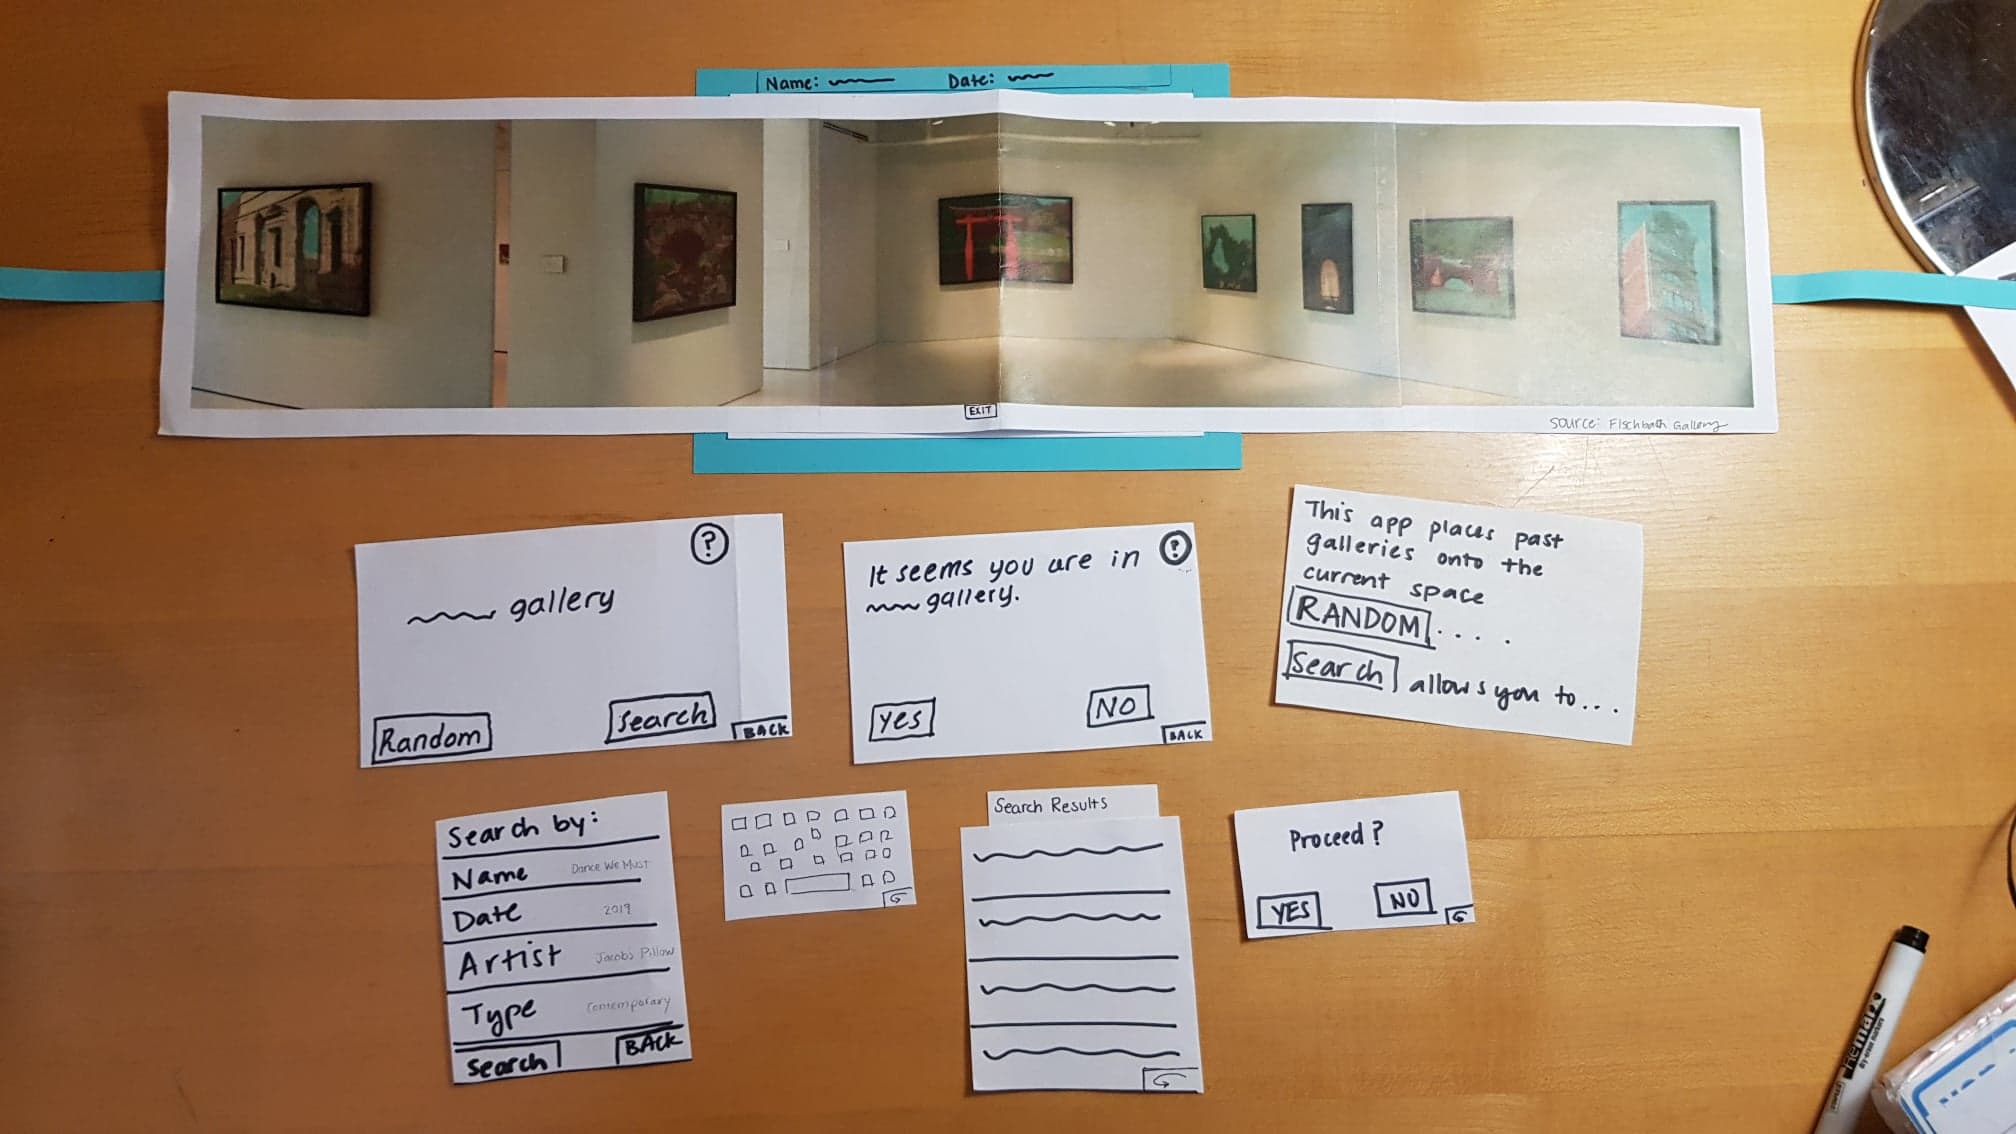 Name: Date:
EXIT
Source: Fischbach Gallery
?
gallery
Random
Search
BACK
?
It seems you are in
gallery.
Yes
NO
BACK
This app places past
galleries onto the
current space
RANDOM....
Search allows you to...
Search by:
Name Dance We Must
Date 2019
Artist Jacobs Pillow
Type Contemporary
Search BACK
Search Results
Proceed?
YES NO
Remarx
dry-erase markers